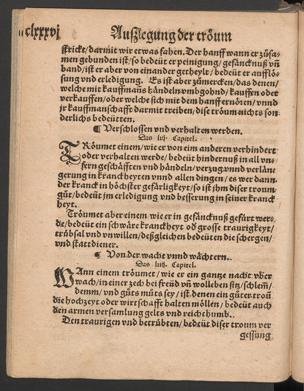 clxxxvj Außlegung der tröum
stricke/darmit wir etwas fahen. Der hanff wann er zůsa-
men gebunden ist/so bedeüt er peinigung/gefäncknuß vñ
band/ist er aber von einander getheylt/bedeüt er aufflö-
sung vnd erledigung. Es ist aber zůmercken/das denen/
welche mit kauffmans händeln vmbgohnd/kauffen oder
verkauffen/oder welche sich mit dem hanff ernören/vnnd
jr kauffmanschafft darmit treiben/diser tröum nichts son-
derlichs bedeütten.
¶ Verschlossen vnd verhalten werden.
Das lvj. Capitel.
TRöumet einem/wie er von eim anderen verhindert
oder verhalten werde/bedeüt hindernuß in all vn-
sern geschäfften vnd händeln/verzug vnnd verlän-
gerung in kranckheyten vnnd allen dingen/es wer dann
der kranck in höchster gefärligkeyt/so ist jhm diser troum
gůt/bedeüt jm erledigung vnd besserung in seiner kranck
heyt.
Tröumet aber einem wie er in gefäncknuß gefürt wer-
de/bedeüt ein schwäre kranckheyt od grosse traurigkeyt/
trübsal vnd vnwillen/deßgleichen bedeüten die schergen/
vnd stattdiener.
¶ Von der wacht vnnd wächtern.
Das lvij. Capitel.
WAnn einem tröumet/wie er ein gantze nacht vber
wach/in einer zech bei freüd vñ wolleben sitz/schlem/
demm/vnd gůts můts sey/ist denen ein gůter troum
die hochzeyt oder wirtschafft halten wöllen/bedeüt auch
den armen versamlung gelts vnd reichthumb.
Den traurigen vnd betrübten/bedeüt diser troum ver
gessung